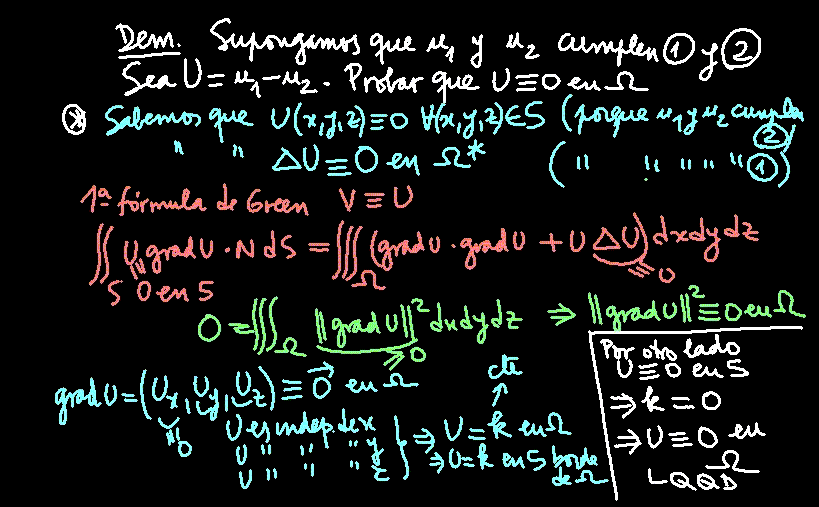 Dem. Supongamos que u₁ y u₂ cumplen ① y ②
Sea U = u₁-u₂. Probar que U≡0 en Ω
⊛ Sabemos que U(x,y,z)≡0 ∀(x,y,z)∈S (porque u₁ y u₂ cumplen ②)
" " ΔU≡0 en Ω* (" " " " " ①)
1ª fórmula de Green V≡U
∬_S U grad U · N dS = ∭_Ω (grad U · grad U + U ΔU) dx dy dz
0 en S
≡0
0 = ∭_Ω ||grad U||² dx dy dz ⇒ ||grad U||² ≡ 0 en Ω
≥0
grad U = (Ux, Uy, Uz) ≡ 0⃗ en Ω
0
cte
U es indep. de x
U " " " y
U " " " z
⇒ U = k en Ω
⇒ U = k en S borde de Ω
Por otro lado
U≡0 en S
⇒ k = 0
⇒ U≡0 en
Ω
LQQD